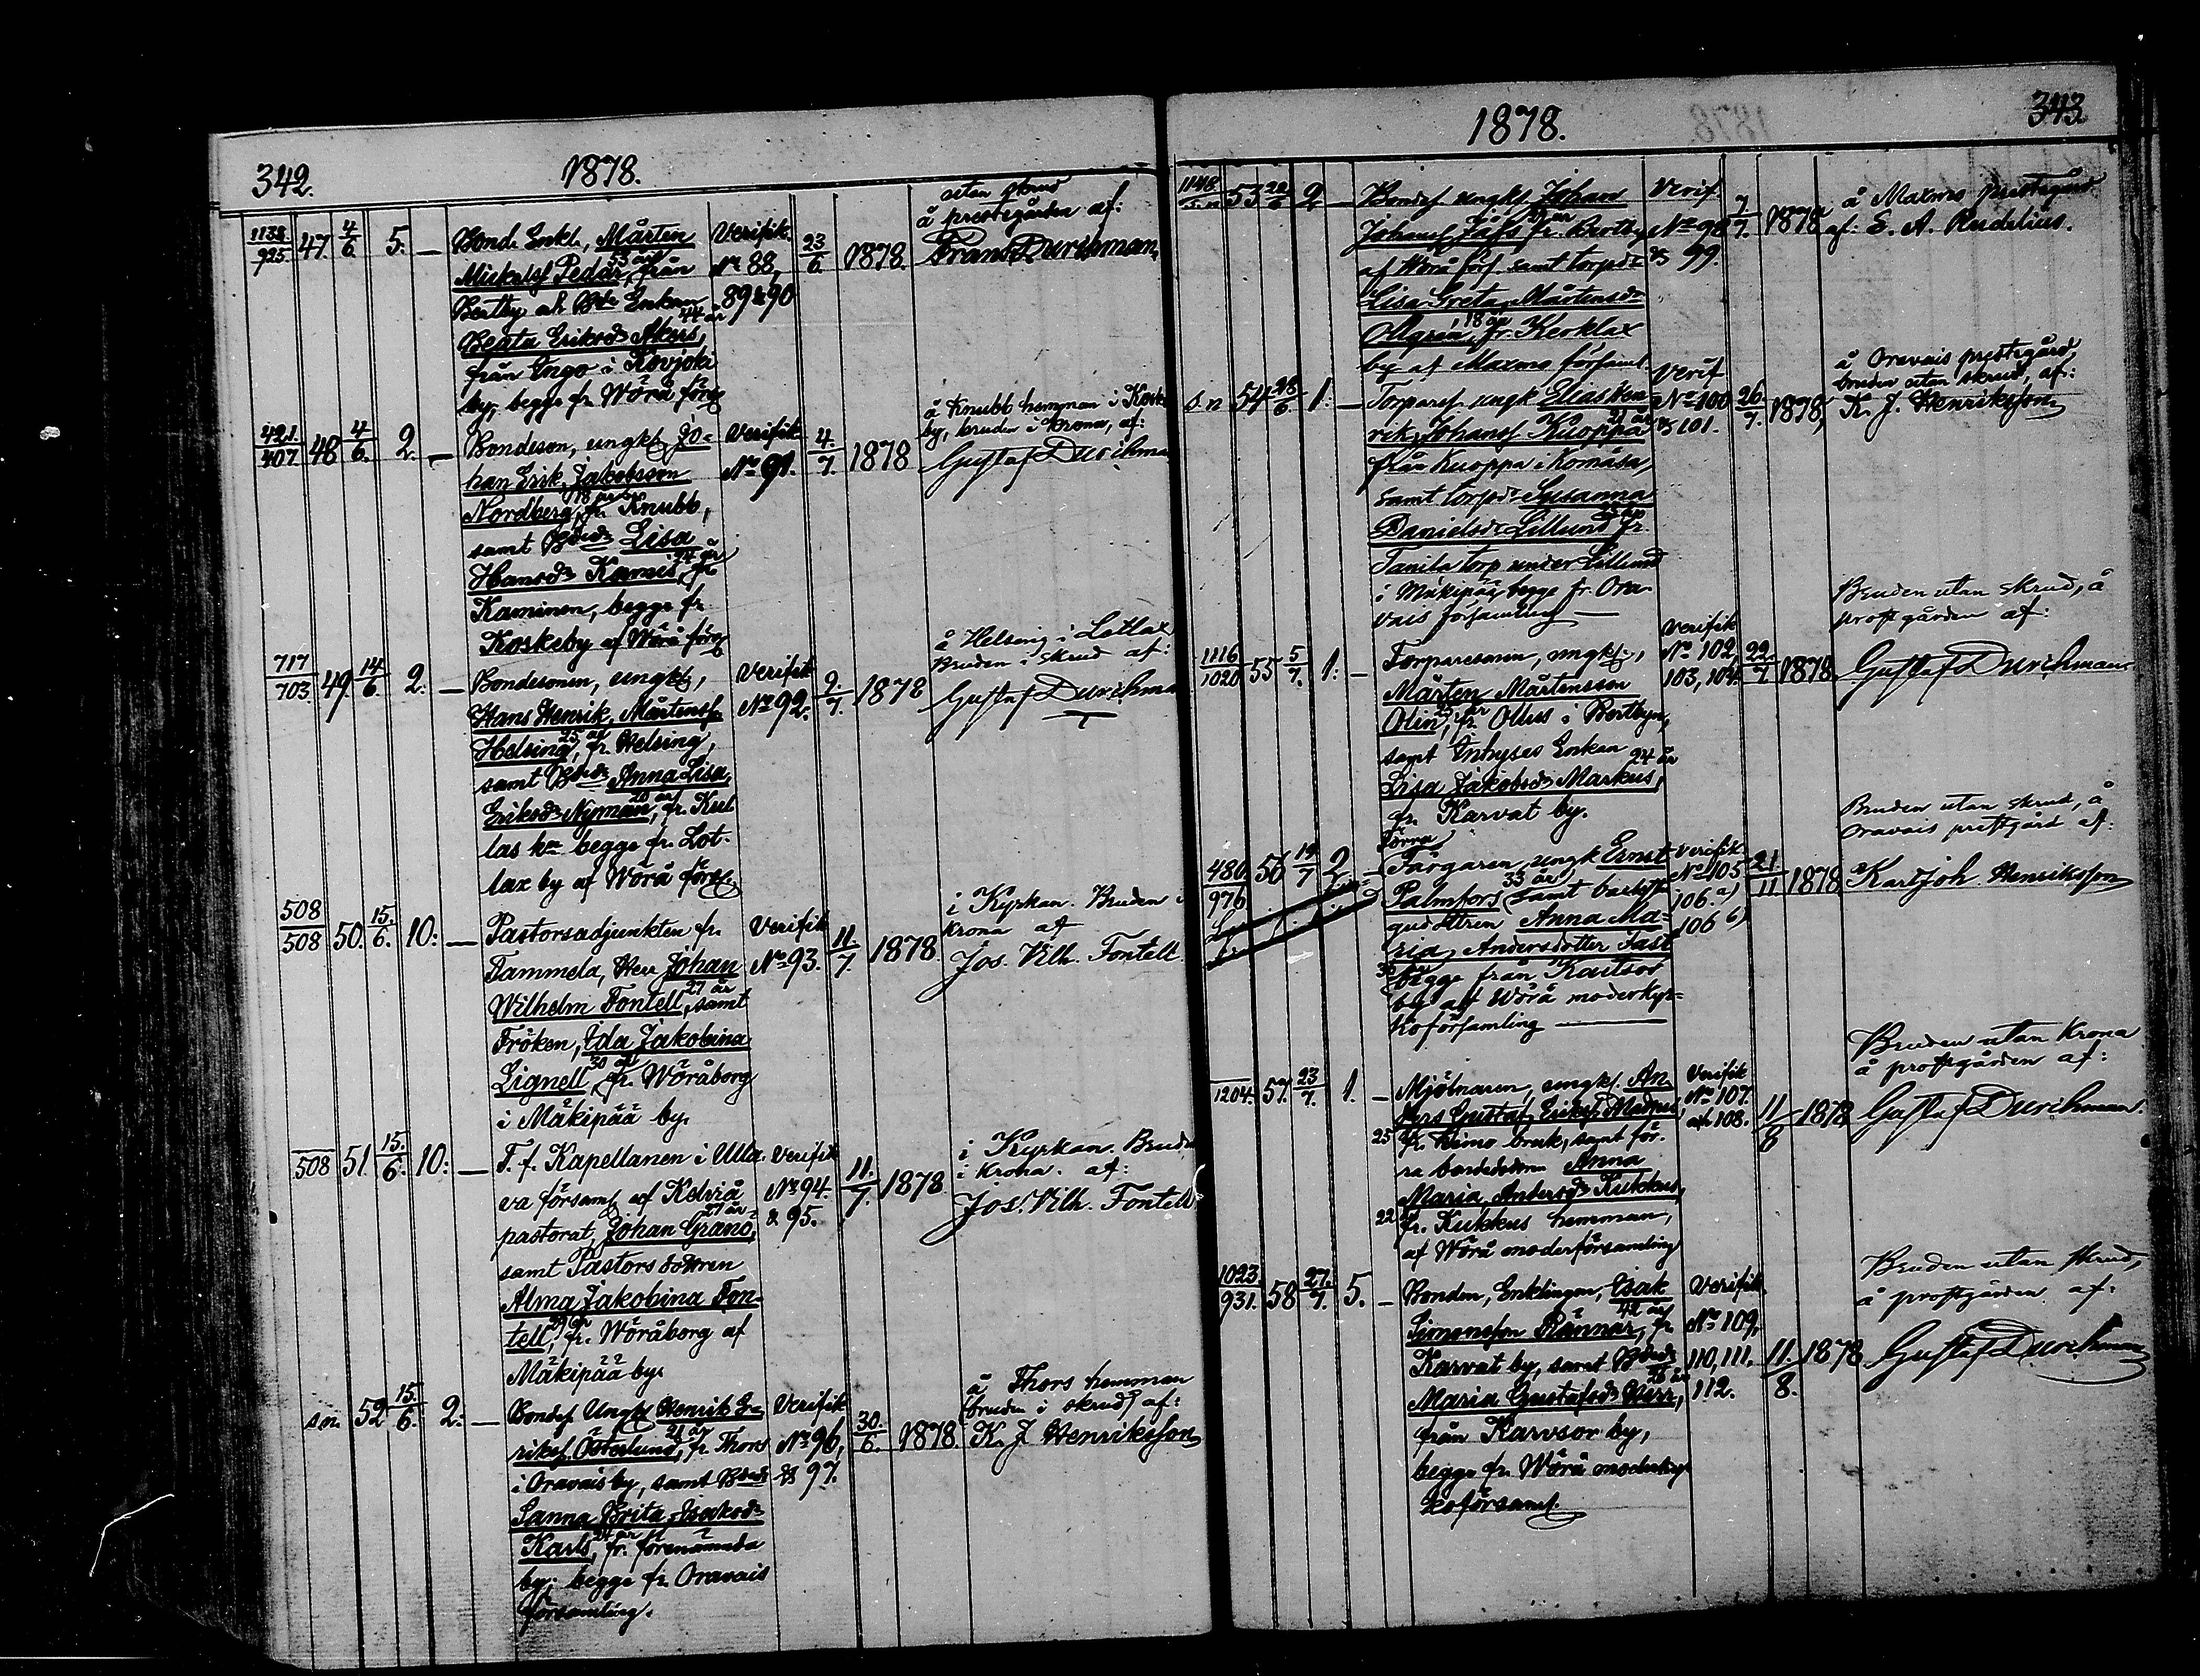 342.
1878.
1138
925
47.
4
6.
5.
Bond. Enkl., Mårten
Mickelsf Pedar, 53 år från
Bertby och Bde Enkan
Beata Eriksdr Åkers, 44 år
från Ingo i Rovjoki
by, begge fr. Wörå förs.
Verifik.
Nr 88,
89 & 90
23
6.
1878.
utan skrud
å prestgården af:
Frans Durchman.
421
407
48
4
6.
2.
Bondeson, ungkl, Jo-
han Erik Jakobsson
Nordberg, 18 år fr. Knubb,
samt Bdedr Lisa
Hansdr Karnis, 24 år fr
Kaminen, begge fr.
Koskeby af Wörå förs.
Verifik
No 91.
4.
7.
1878
å Knubb hemman i Koske
by, bruden i krona, af:
Gustaf Durchma
717
703.
49.
14
6.
2.
Bondesonen, ungkl,
Hans Henrik Mårtensf.
Helsing, 25 år fr. Helsing,
samt Bdedr Anna Lisa
Eriksdr Nyman, 20 år fr. Kul
las hn begge fr. Lot-
lax by af Wörå förs.
Verifik
No 92.
9.
7.
1878
å Helsing i Lotlax
Bruden i skrud af:
Gustaf Durchma
508
508
50.
15.
6.
10.
Pastorsadjunkten fr.
Tammela, Herr Johan
Wilhelm Fontell, 27 år samt
Fröken, Ida Jakobina
Lignell 30 år fr. Wöråborg
i Mäkipää by.
Verifik
No 93.
11
7.
1878.
i Kyrkan. Bruden i
krona af
Jos. Vilh. Fontell.
508
51.
15.
6.
10:
T. f. Kapellanen i Ulla-
va församl af Kelviå
pastorat, Johan Granö, 27 år
samt Pastorsdottren
Alma Jakobina Fon-
tell, fr. Wöråborg af
Mäkipää by.
Verifik
No 94.
& 95.
11.
7.
1878
i Kyrkan. Brude
i krona. af:
Jos. Vilh. Fontell
s.n.
52
15.
6.
2.
Bondef Ungkl Henrik Hen-
riksf. Österlund, 21 år fr. Thors
i Oravais by, samt Bdedr
Sanna Brita Isaksdr
Karls, fr. förenämnda
by; begge fr. Oravais
församling.
Verifik
No 96,
& 97.
30.
6.
1878.
å Thors hemman
(bruden i skrud) af:
K. J. Henriksson
1878.
343
1148
s.n
53
6
2
Bondef ungkl Johan
Johansf Jåfs fr. Bertby
af Wörå förs. samt torpdr
Lisa Greta Mårtensdr
Ollqvist, 18 år fr. Kerklax
by af Maxmo församl.
Verif
No 98
& 99.
7
7.
1878
å Maxmo prestgård
af: E. A. Rudelius.
s n
54
28
6.
1.
Torparef. ungk Elias Hen
rik Johansf. Kuoppa 21 år
från Kuoppa i Komåsa,
samt torpdr Susanna
Danielsdr Lillund fr.
Tanila torp under Lillund
i Mäkipää, begge fr. Ora-
vais församling
Verif
No 100
& 101.
26
7.
1878,
å Oravais prestgård,
bruden utan skrud, af:
K. J. Henriksson
1116
1020
55
5
7.
1.
Torparesonen, ungkl.,
Mårten Mårtensson
Olin, fr. Ollus i Bertby,
samt Inhyses Enkan
Lisa Jakobsdr Markus, 24 år
fr. Karvat by.
Verifik
No 102,
103, 104.
22
7
1878
Bruden utan skrud, å
prostgården af:
Gustaf Durchman
480
976
56
19
7
2
Förra
Färgaren, ungk Ernst
Palmfors (33 år) samt backst
gudottren Anna Ma-
ria Andersdotter Fast
begge från Kaitsor
by af Wörå moderkyr-
koförsamling
Verifik
No 105
106. a)
106 b)
21
11
1878
Bruden utan skrud, å
Oravais prestgård af:
Karl Joh. Henriksson
1204.
57.
23
7.
1.
Mjölnaren, ungkl. An-
ders Gustaf Eriksf Malmus,
25 fr. Kimo bruk, samt för-
ra bondedottern Anna
Maria Andersdr Kukkus,
22 fr. Kukkus hemman,
af Wörå moderförsamling
Verifik
No 107.
och 108.
11
8
1878
Bruden utan Krona
å prostgården af:
Gustaf Durchman.
1023
931.
58
27.
7.
5.
Bonden, Enklingen, Isak
Simonsson Rännar, 42 år fr
Karvat by, samt Bdedr
Maria Gustafsdr Werr,
från Karvsor by,
begge fr. Wörå moderkyr-
koförsaml.
Verifik
No 109,
110, 111,
112.
11.
8.
1878
Bruden utan skrud,
å prostgården af:
Gustaf Durchman